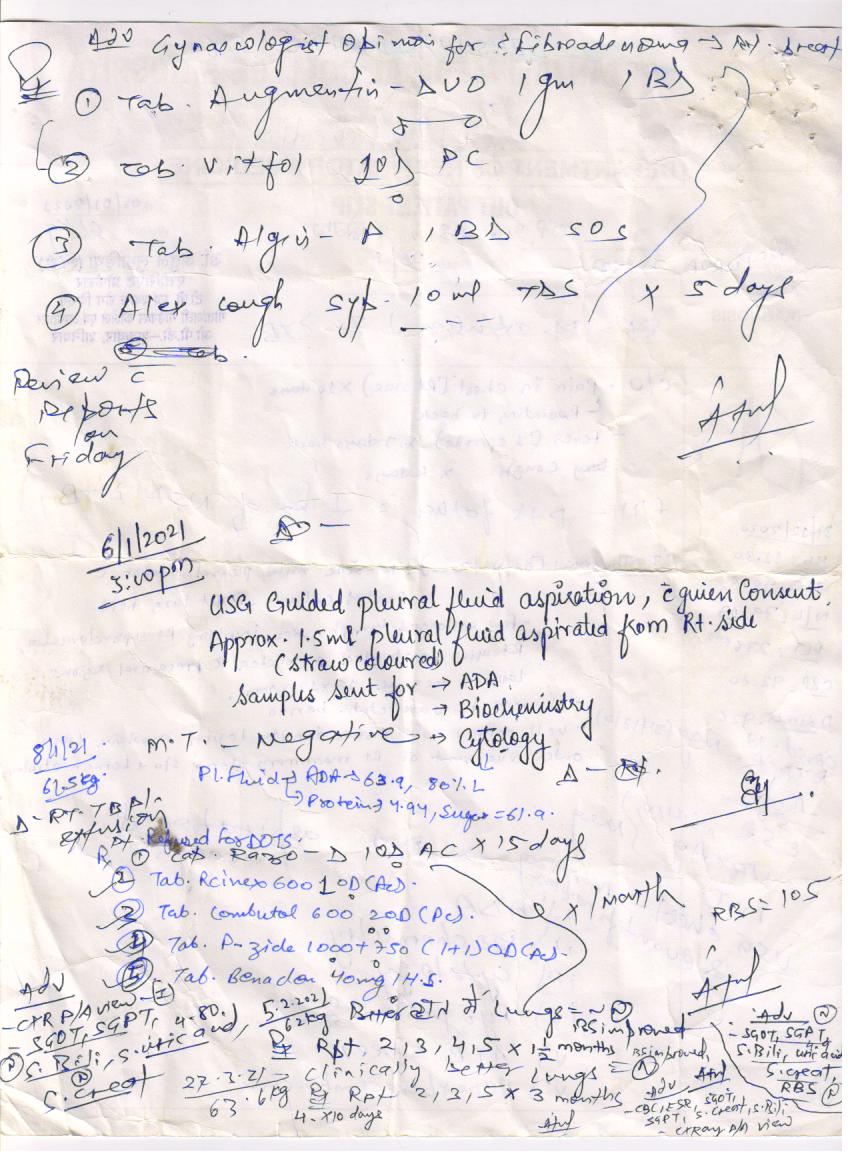 Adv Gynaecologist Opinion for ? fibroadenoma → Rt. breast
① Tab. Augmentin - DUO 1gm 1 BD
② Tab. Vitfol 1OD PC
③ Tab. Algin - P 1BD SOS
④ Alex cough syp. 10 ml TDS x 5 days
Tab.
Review c
Reports
on
Friday
6/1/2021
3:00pm
USG Guided pleural fluid aspiration, c̄ given Consent.
Approx. 1.5ml pleural fluid aspirated from Rt. side
(straw coloured)
Samples sent for → ADA.
→ Biochemistry
→ Cytology
M.T. - Negative
8/1/21
61.5kg
Pl. Fluid → ADA → 63.9, 80% L
→ Protein → 4.94, Sugar = 61.9.
Δ - RT. TB Pl.
effusion
Pt. Refused for DOTS.
Rx ① Cap. Razo - D 1OD AC x 15 days
② Tab. Rcinex 600 1 OD (Ac).
③ Tab. Combutol 600 2OD (Pc).
④ Tab. P-zide 1000+750 (1+1) OD (Ac).
⑤ Tab. Benadon 40mg 1H.S.
x 1 month
RBS = 105
Adv
- CXR P/A view
- SGOT, SGPT,
S. Bili, S. uric acid,
S. creat
4.80.
5.2.2021
62kg
Better Lungs = N
BS improved
Rx Rpt. 2, 3, 4, 5 x 1½ months
Adv
- SGOT, SGPT,
S. Bili, uric acid
S. creat,
RBS
27.3.21 → Clinically better Lungs = N
BS improved,
63.6kg Rx Rpt 2, 3, 5 x 3 months
4 - x10 days
Adv
- CBC, ESR, SGOT,
SGPT, S. creat, S. Bili
- CXRay P/A view